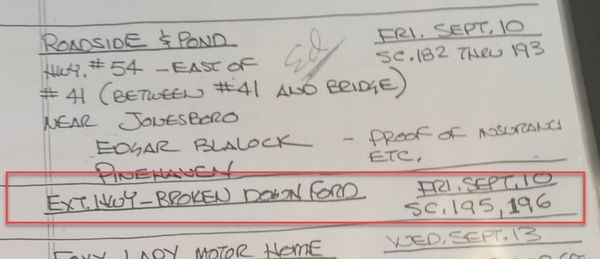 ROADSIDE & POND FRI. SEPT. 10
HWY. #54 - EAST OF Ed SC. 182 THRU 193
#41 (BETWEEN #41 AND BRIDGE)
NEAR JONESBORO
EDGAR BLALOCK - PROOF OF INSURANCE
PINEHAVEN ETC.
EXT. HWY - BROKEN DOWN FORD FRI. SEPT. 10
SC. 195, 196
FOXY LADY MOTOR HOME WED. SEPT. 13